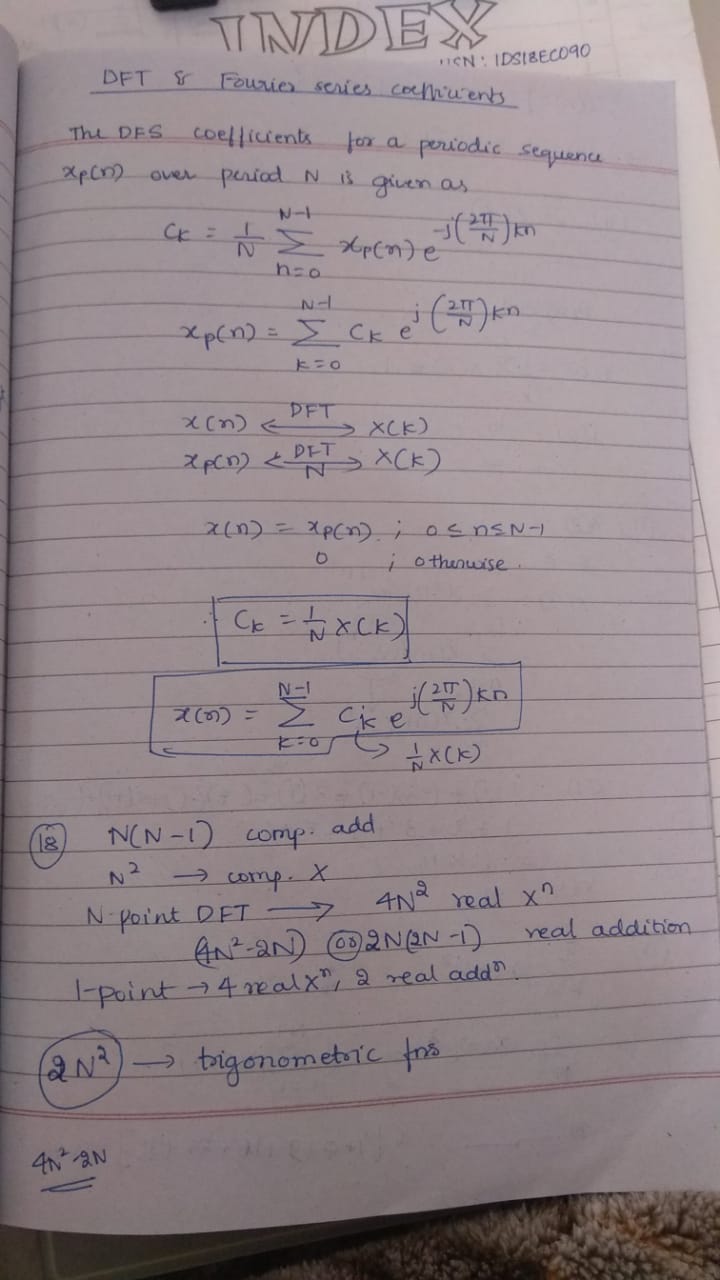 INDEX
USN: 1DS18EC090
DFT & Fourier series coefficients
The DFS coefficients for a periodic sequence
xp(n) over period N is given as
Ck = 1/N Σ_{n=0}^{N-1} xp(n) e^{-j(2π/N)kn}
xp(n) = Σ_{k=0}^{N-1} Ck e^{j(2π/N)kn}
x(n) <—DFT—> X(k)
xp(n) <—DFT/N—> X(k)
x(n) = xp(n) ; 0 ≤ n ≤ N-1
0 ; otherwise.
Ck = 1/N X(k)
x(n) = Σ_{k=0}^{N-1} Ck e^{j(2π/N)kn}
↳ 1/N X(k)
(18) N(N-1) comp. add
N² → comp. X
N-point DFT → 4N² real xⁿ
(4N²-2N) (or) 2N(2N-1) real addition
1-point → 4 real xⁿ, 2 real addⁿ.
2N² → trigonometric fns
4N²-2N